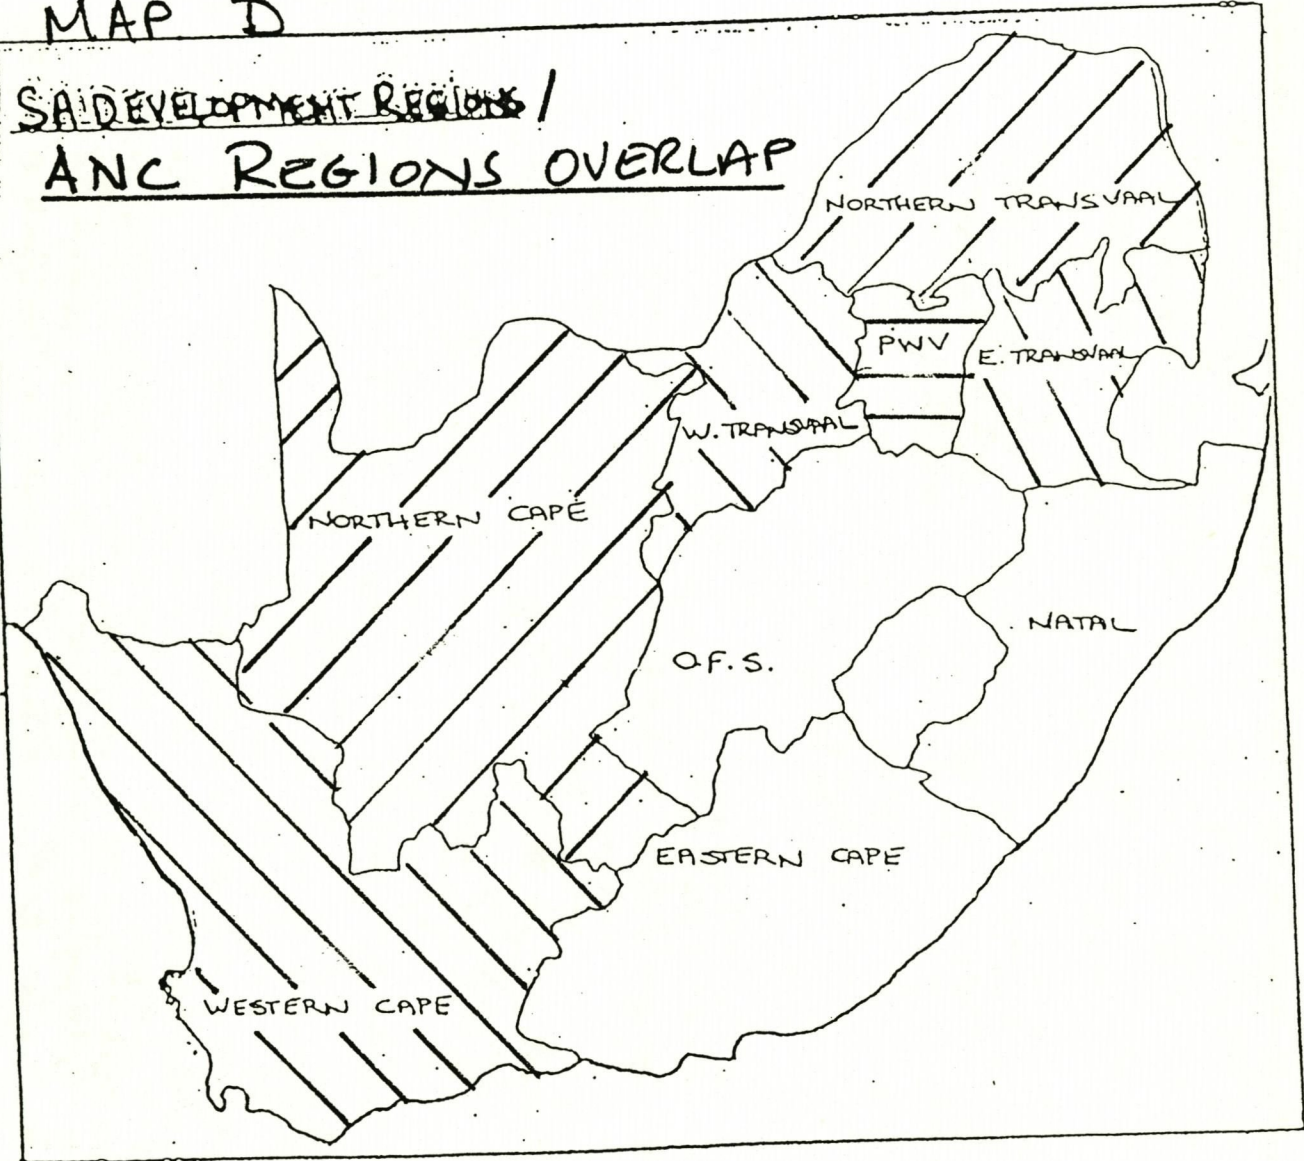 MAP D
SA DEVELOPMENT REGIONS /
ANC REGIONS OVERLAP
NORTHERN TRANSVAAL
PWV
E. TRANSVAAL
W. TRANSVAAL
NORTHERN CAPE
NATAL
O.F.S.
EASTERN CAPE
WESTERN CAPE